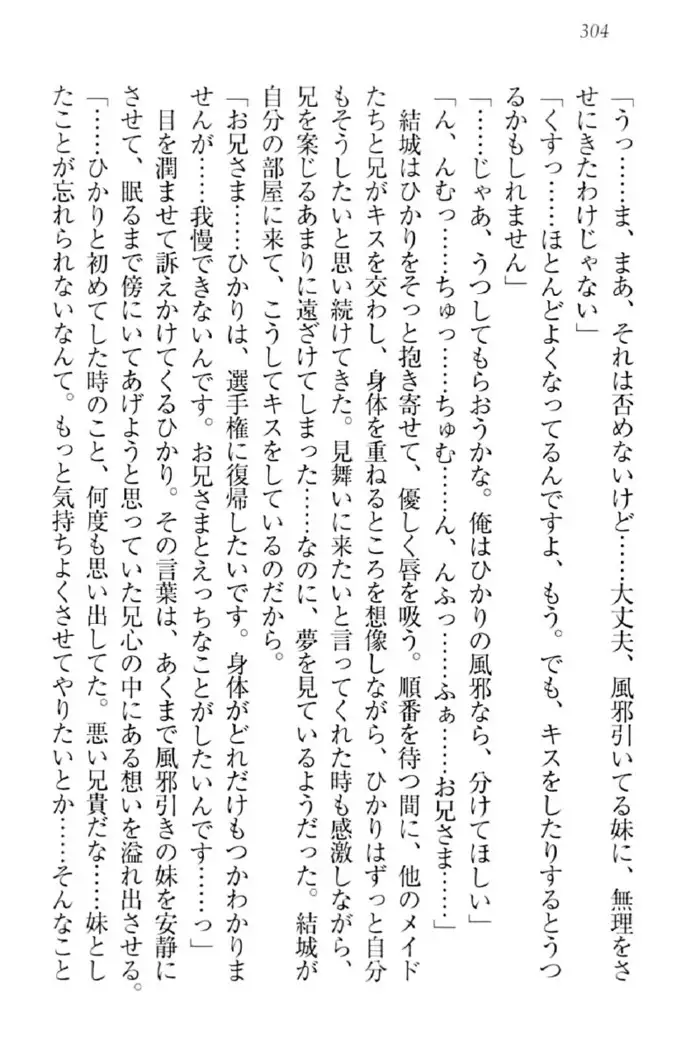 304
「うっ……ま、まあ、それは否めないけど……大丈夫、風邪引いてる妹に、無理をさ
せにきたわけじゃない」
「くすっ……ほとんどよくなってるんですよ、もう。でも、キスをしたりするとうつ
るかもしれません」
「……じゃあ、うつしてもらおうかな。俺はひかりの風邪なら、分けてほしい」
「ん、んむっ……ちゅっ……ちゅむ……ん、んふっ……ふぁ……お兄さま……」
結城はひかりをそっと抱き寄せて、優しく唇を吸う。順番を待つ間に、他のメイド
たちと兄がキスを交わし、身体を重ねるところを想像しながら、ひかりはずっと自分
もそうしたいと思い続けてきた。見舞いに来たいと言ってくれた時も感激しながら、
兄を案じるあまりに遠ざけてしまった……なのに、夢を見ているようだった。結城が
自分の部屋に来て、こうしてキスをしているのだから。
「お兄さま……ひかりは、選手権に復帰したいです。身体がどれだけもつかわかりま
せんが……我慢できないんです。お兄さまとえっちなことがしたいんです……っ」
目を潤ませて訴えかけてくるひかり。その言葉は、あくまで風邪引きの妹を安静に
させて、眠るまで傍にいてあげようと思っていた兄心の中にある想いを溢れ出させる。
「……ひかりと初めてした時のこと、何度も思い出してた。悪い兄貴だな……妹とし
たことが忘れられないなんて。もっと気持ちよくさせてやりたいとか……そんなこと